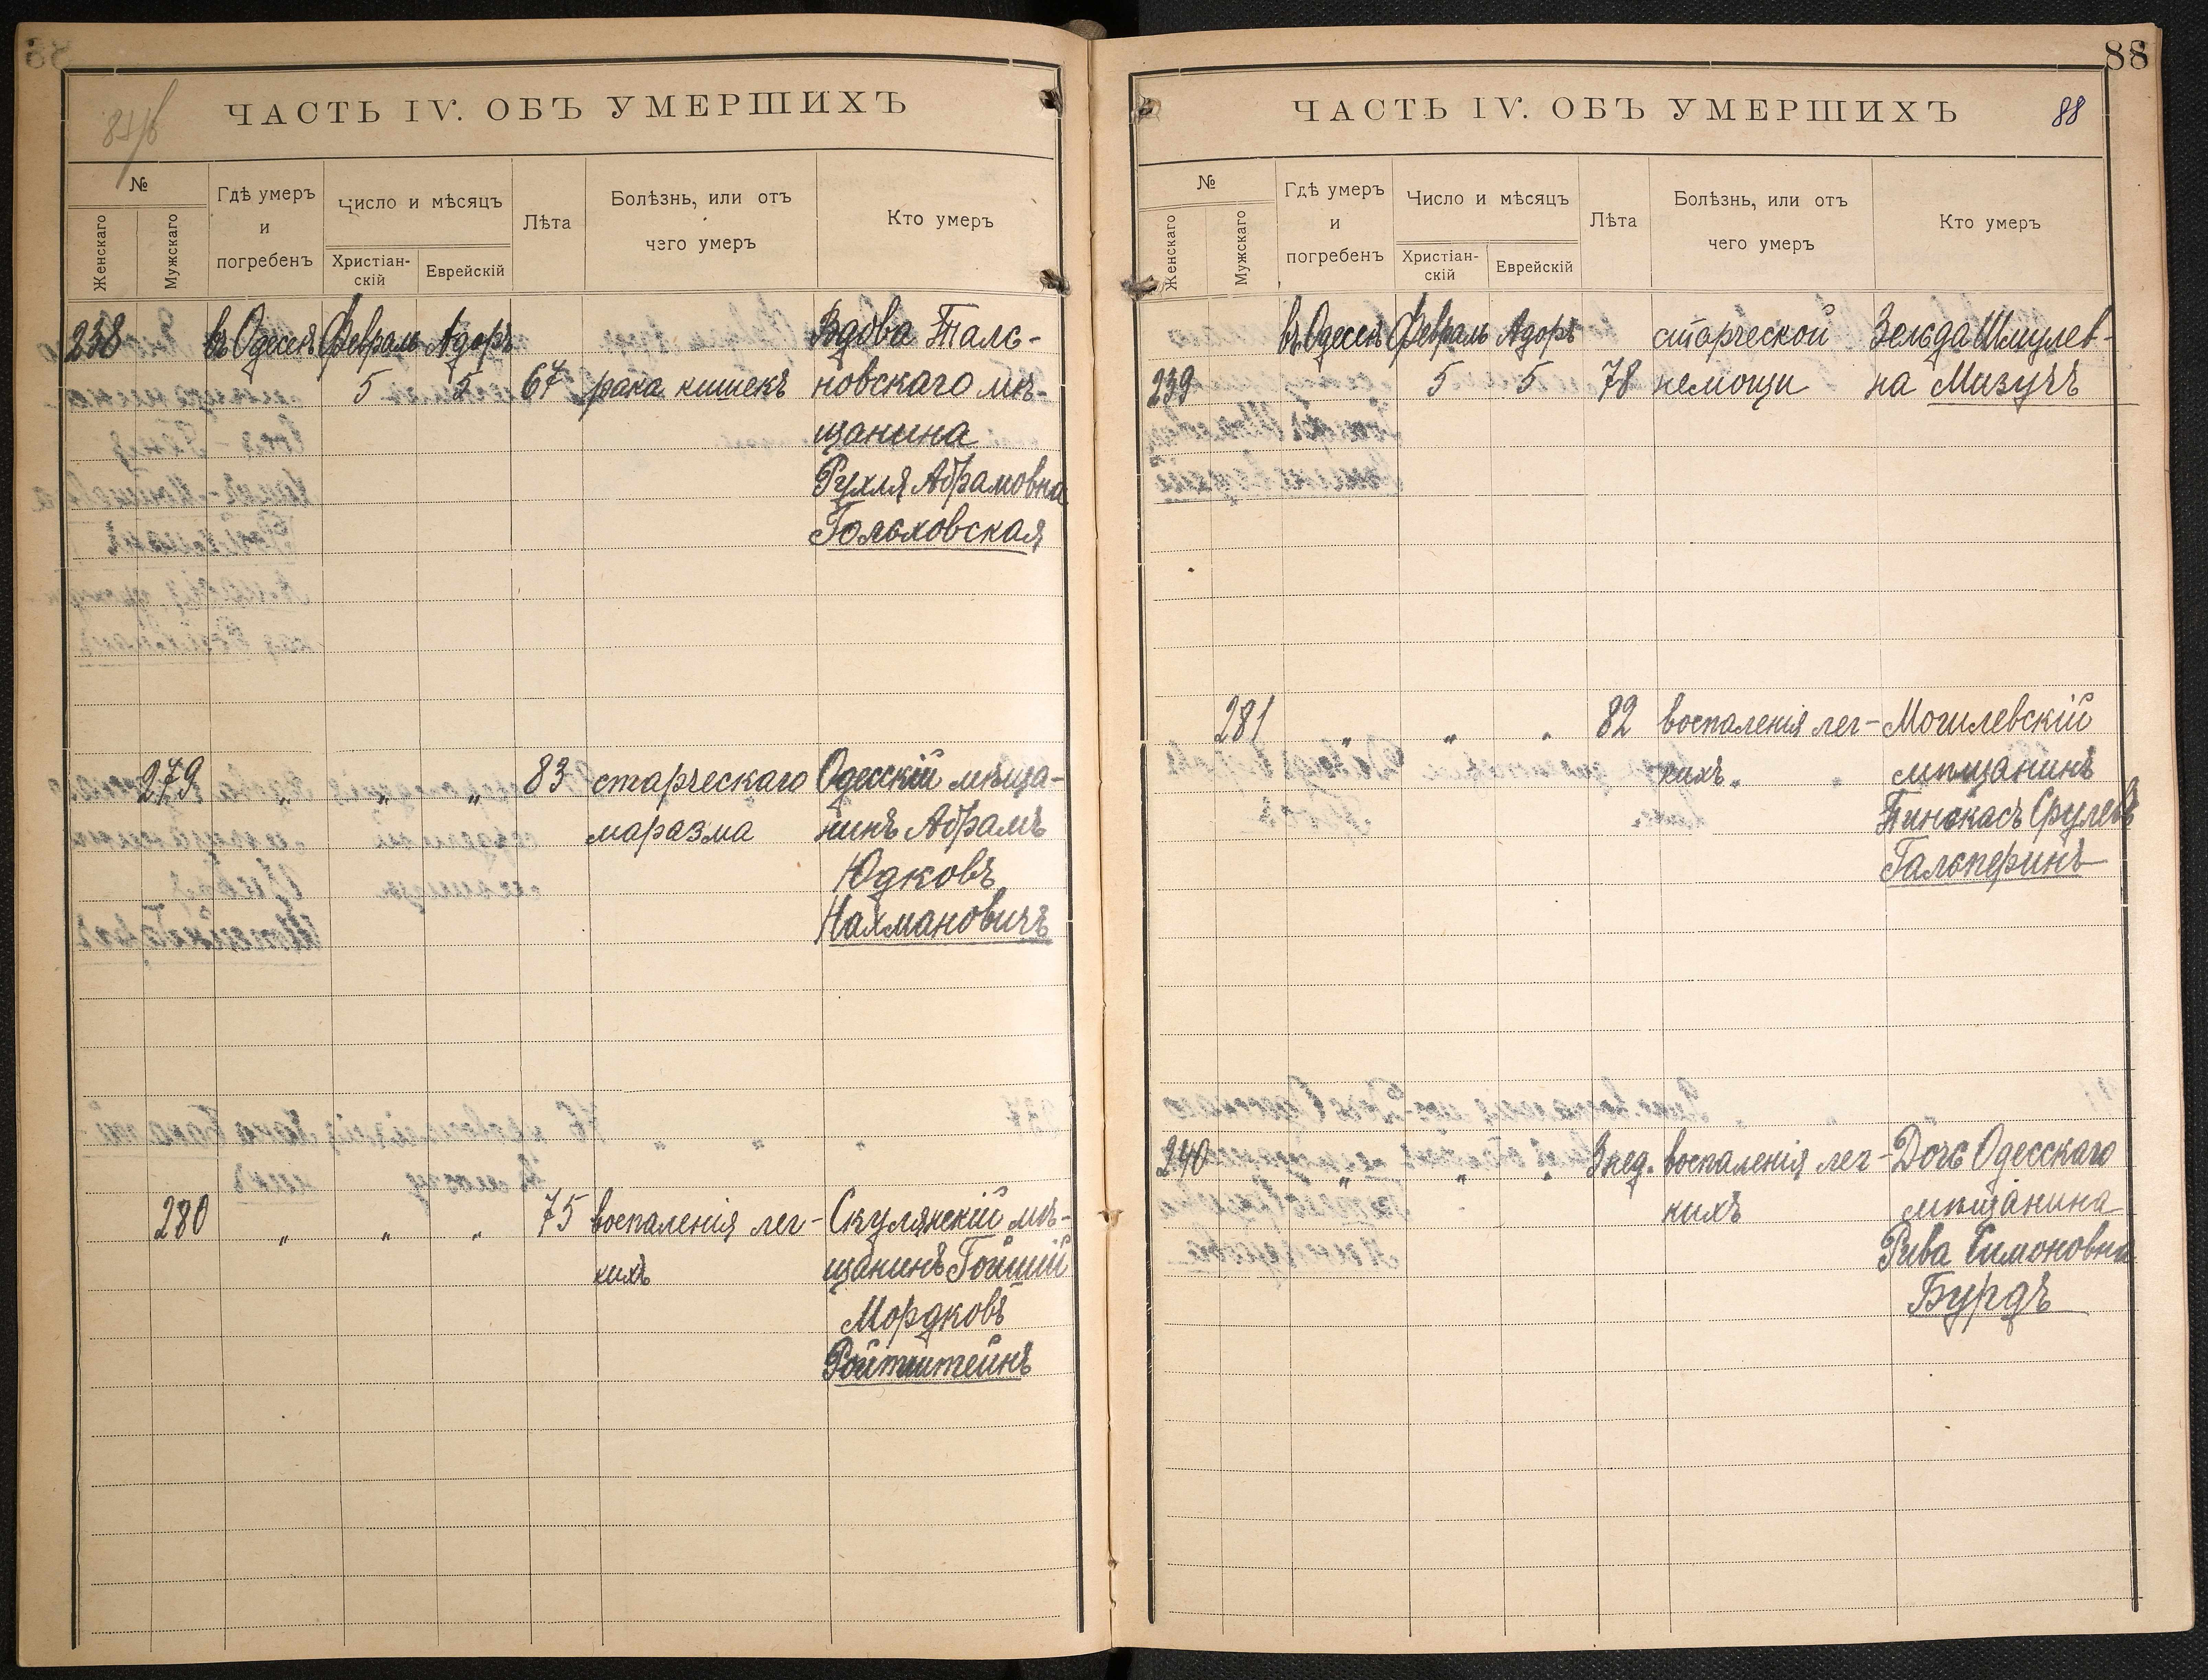 87/б
ЧАСТЬ IV. ОБЪ УМЕРШИХЪ
№
Женскаго
Мужскаго
Гдѣ умеръ
и
погребенъ
Число и мѣсяцъ
Христіан-
скій
Еврейскій
Лѣта
Болѣзнь, или отъ
чего умеръ
Кто умеръ
238 въ Одессѣ Февраль Адоръ Вдова Таль-
5 5 67 рака кишекъ новскаго мѣ-
щанина
Рухля Абрамовна
Гольховская
279 " " " 83 старческаго Одесскій мѣща-
маразма нинъ Абрамъ
Юдковъ
Нахмановичъ
280 " " " 75 воспаленія лег- Скулянскій мѣ-
кихъ щанинъ Гойшій
Мордковъ
Ройтштейнъ
88
ЧАСТЬ IV. ОБЪ УМЕРШИХЪ 88
№
Женскаго
Мужскаго
Гдѣ умеръ
и
погребенъ
Число и мѣсяцъ
Христіан-
скій
Еврейскій
Лѣта
Болѣзнь, или отъ
чего умеръ
Кто умеръ
въ Одессѣ Февраль Адоръ старческой Зельда Шмулев-
239 5 5 78 немощи на Мизучъ
281 " " " 82 воспаленія лег- Могилевскій
кихъ. мѣщанинъ
Пинькасъ Срулевъ
Гальперинъ
240 " " " 3 нед. воспаленія лег- Дочь Одесскаго
кихъ мѣщанина
Рива Симоновна
Бурдъ